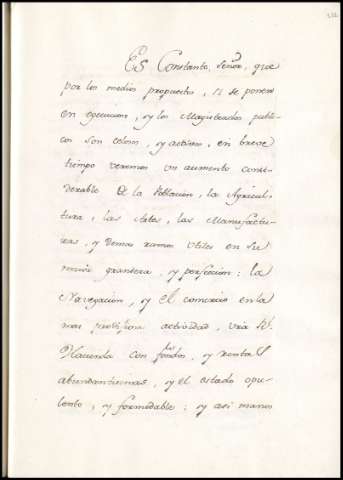 Es Constante, Señor, que
por los medios propuestos, si se ponen
en egecucion, y los Magistrados publi-
cos son celosos, y activos, en breve
tiempo veremos un aumento consi-
derable de la Poblacion, la Agricul-
tura, las Artes, las Manufactu-
ras, y demas ramos utiles en su
mayor grandeza, y perfeccion: la
Navegacion, y el comercio en la
mas prodigiosa actividad, una Rl.
Hacienda con los fondos, y rentas
abundantisimas, y el estado opu-
lento, y formidable: y asi manos